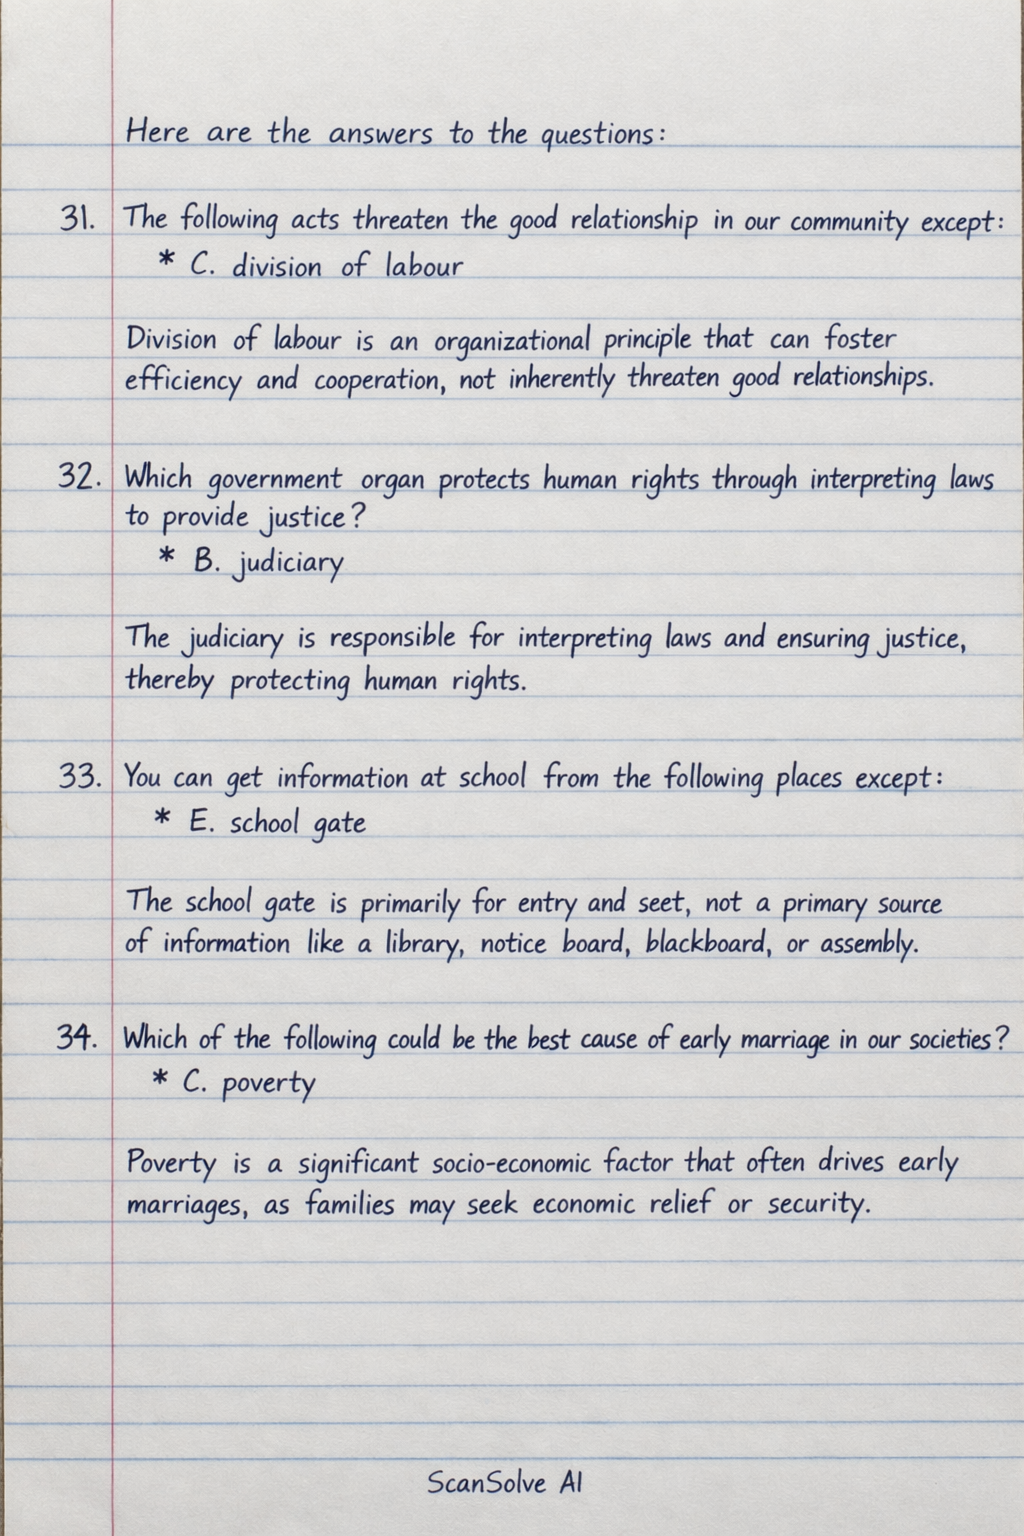 Here are the answers to the questions:
31. The following acts threaten the good relationship in our community except:
* C. division of labour
Division of labour is an organizational principle that can foster
efficiency and cooperation, not inherently threaten good relationships.
32. Which government organ protects human rights through interpreting laws
to provide justice?
* B. judiciary
The judiciary is responsible for interpreting laws and ensuring justice,
thereby protecting human rights.
33. You can get information at school from the following places except:
* E. school gate
The school gate is primarily for entry and seet, not a primary source
of information like a library, notice board, blackboard, or assembly.
34. Which of the following could be the best cause of early marriage in our societies?
* C. poverty
Poverty is a significant socio-economic factor that often drives early
marriages, as families may seek economic relief or security.
ScanSolve AI